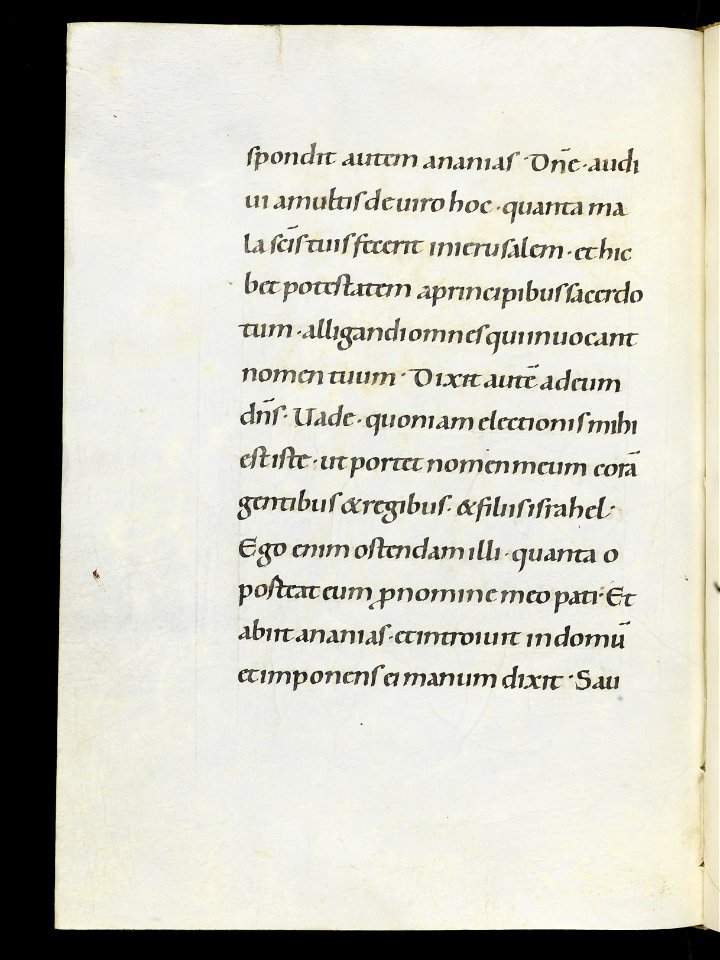 spondit autem ananias · Dn̄e · audi
ui a multis de uiro hoc · quanta ma
la sc̄is tuis fecerit in ierusalem · et hic
bet potestatem a principibus sacerdo
tum · alligandi omnes qui inuocant
nomen tuum · Dixit autē ad eum
dn̄s · Uade · quoniam electionis mihi
est iste · ut portet nomen meum corā
gentibus & regibus · & filiis israhel ·
Ego enim ostendam illi · quanta o
posteat eum ꝓ nomine meo pati · Et
abiit ananias · et introiuit in domū
et imponens ei manum dixit · Sau